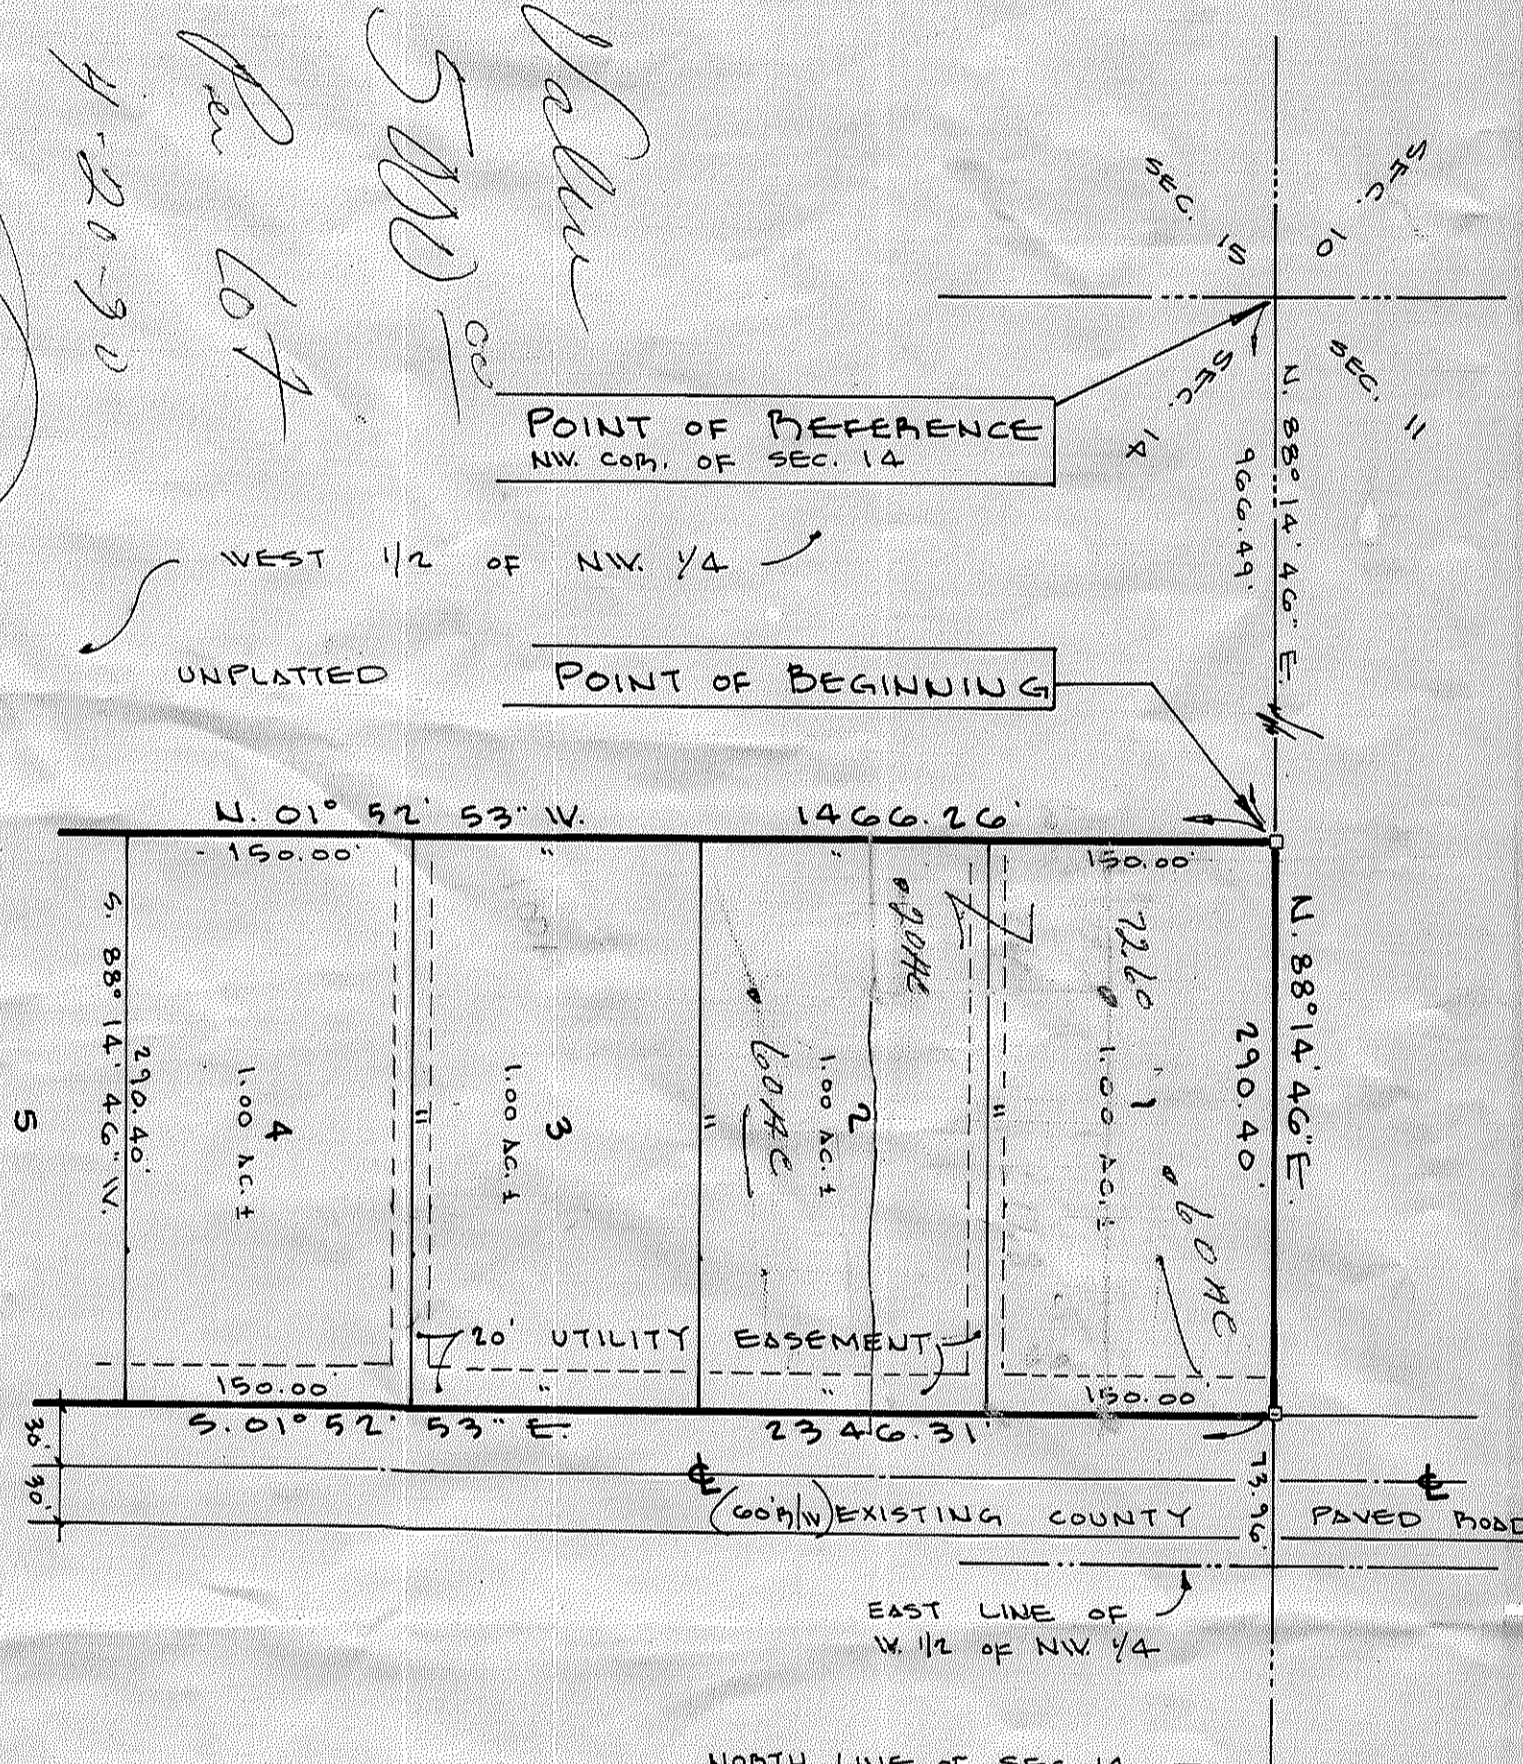 Value
5000 00
Per lot
4-20-30
SEC. 15
SEC. 10
SEC. 14
SEC. 11
POINT OF REFERENCE
NW. COR. OF SEC. 14
N. 88° 14' 46" E.
966.49'
WEST 1/2 OF NW. 1/4
UNPLATTED
POINT OF BEGINNING
N. 01° 52' 53" W. 1466.26'
150.00' " " 150.00'
N. 88° 14' 46" E.
290.40'
.60 AC
1
1.00 AC.±
7260
"
.20 AC
2
1.00 AC.±
.60 AC
"
3
1.00 AC.±
"
4
1.00 AC.±
290.40'
S. 88° 14' 46" W.
5
20' UTILITY EASEMENT
150.00' " " 150.00'
S. 01° 52' 53" E. 2346.31'
30'
30'
73.96'
℄ ℄
(60' R/W) EXISTING COUNTY PAVED ROAD
EAST LINE OF
W. 1/2 OF NW. 1/4
NORTH LINE OF SEC. 14